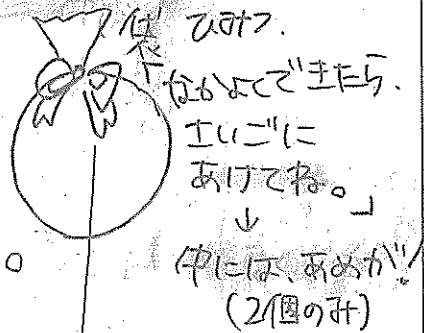 袋 ひみつ.
なかよくできたら.
さいごに
あけてね。」
↓
中には、あめが!
(2個のみ)